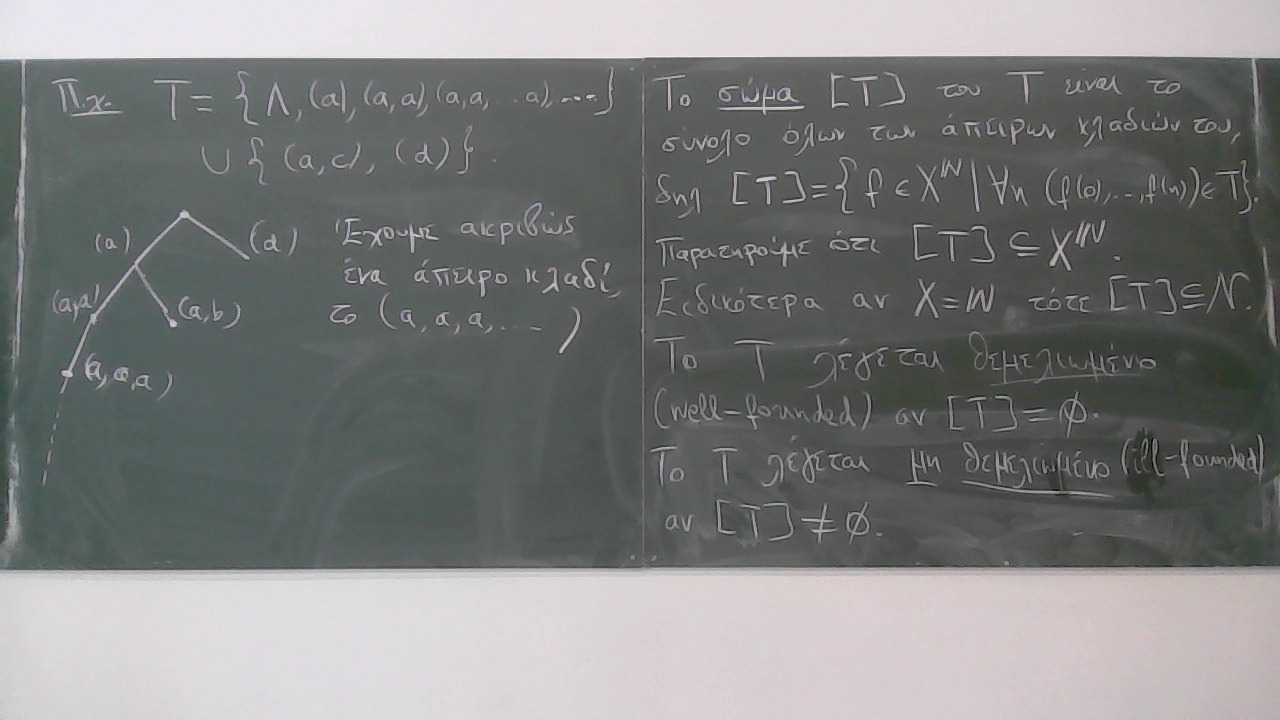 Π.χ. T = {Λ, (a), (a,a), (a,a,...a), ....}
∪ {(a,c), (d)}.
(a) (d)
(a,a) (a,b)
(a,a,a)
Έχουμε ακριβώς
ένα άπειρο κλαδί,
το (a, a, a, .... )
Το σώμα [T] του T είναι το
σύνολο όλων των άπειρων κλαδιών του,
δηλ [T]={f ∈ X^ℕ | ∀n (f(0),...,f(n)) ∈ T}.
Παρατηρούμε ότι [T] ⊆ X^ℕ.
Ειδικότερα αν X=ℕ τότε [T]⊆𝒩.
Το T λέγεται θεμελιωμένο
(well-founded) αν [T]=∅.
Το T λέγεται μη θεμελιωμένο (ill-founded)
αν [T] ≠ ∅.